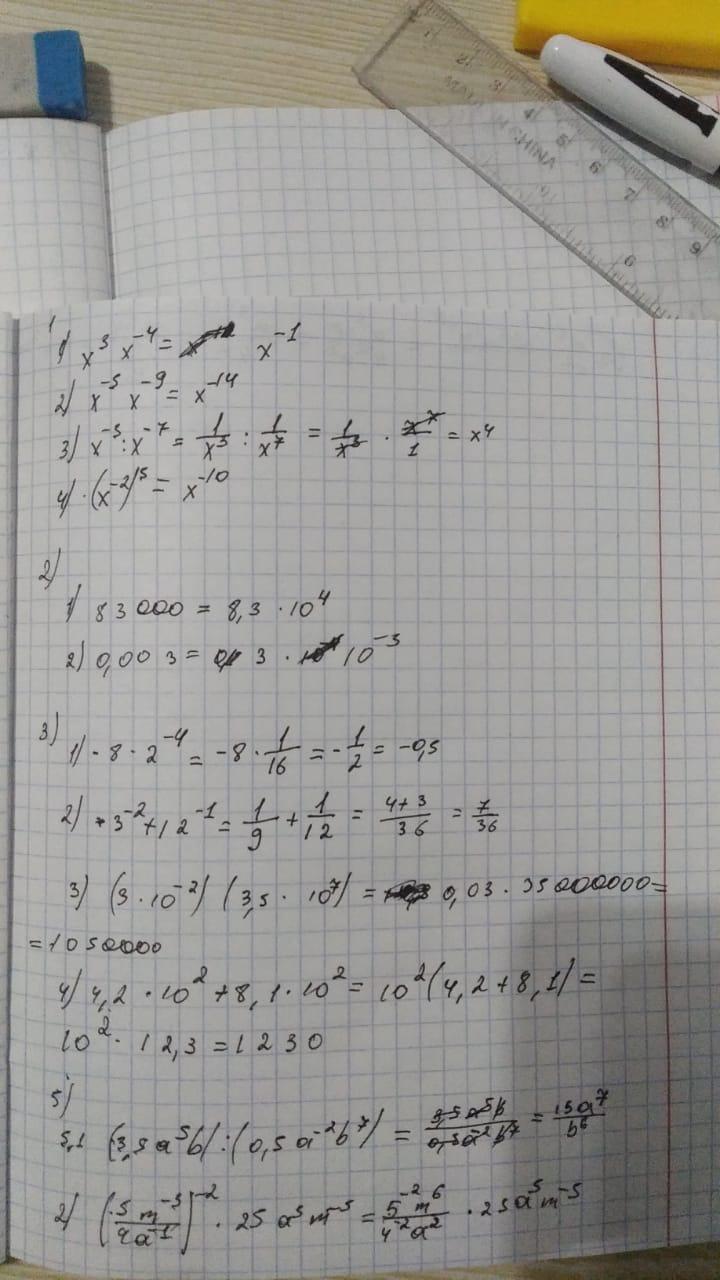 1 2 3 4 5 6 7 8 9
MADE IN CHINA
6
1
1) x³ x⁻⁴ = x⁻¹
2) x⁻⁵ x⁻⁹ = x⁻¹⁴
3) x⁻³ : x⁻⁷ = 1/x³ : 1/x⁷ = 1/x³ · x⁷/1 = x⁴
4) · (x⁻²)⁵ = x⁻¹⁰
2)
1) 83 000 = 8,3 · 10⁴
2) 0,00 3 = 3 · 10⁻³
3)
1) -8 · 2⁻⁴ = -8 · 1/16 = -1/2 = -0,5
2) 3⁻² + 12⁻¹ = 1/9 + 1/12 = 4+3/36 = 7/36
3) (3 · 10⁻²) (3,5 · 10⁷) = 0,03 · 35000000 =
= 1050000
4) 4,2 · 10² + 8,1 · 10² = 10² (4,2 + 8,1) =
10² · 12,3 = 1230
5)
5.1 (3,5a⁵b) : (0,5a⁻²b⁷) = 3,5a⁵b/0,5a⁻²b⁷ = a⁷/b⁶
2) (5m⁻³/4a⁻¹)⁻² · 25a⁵m⁻⁵ = 5⁻²m⁶/4⁻²a² · 25a⁵m⁻⁵